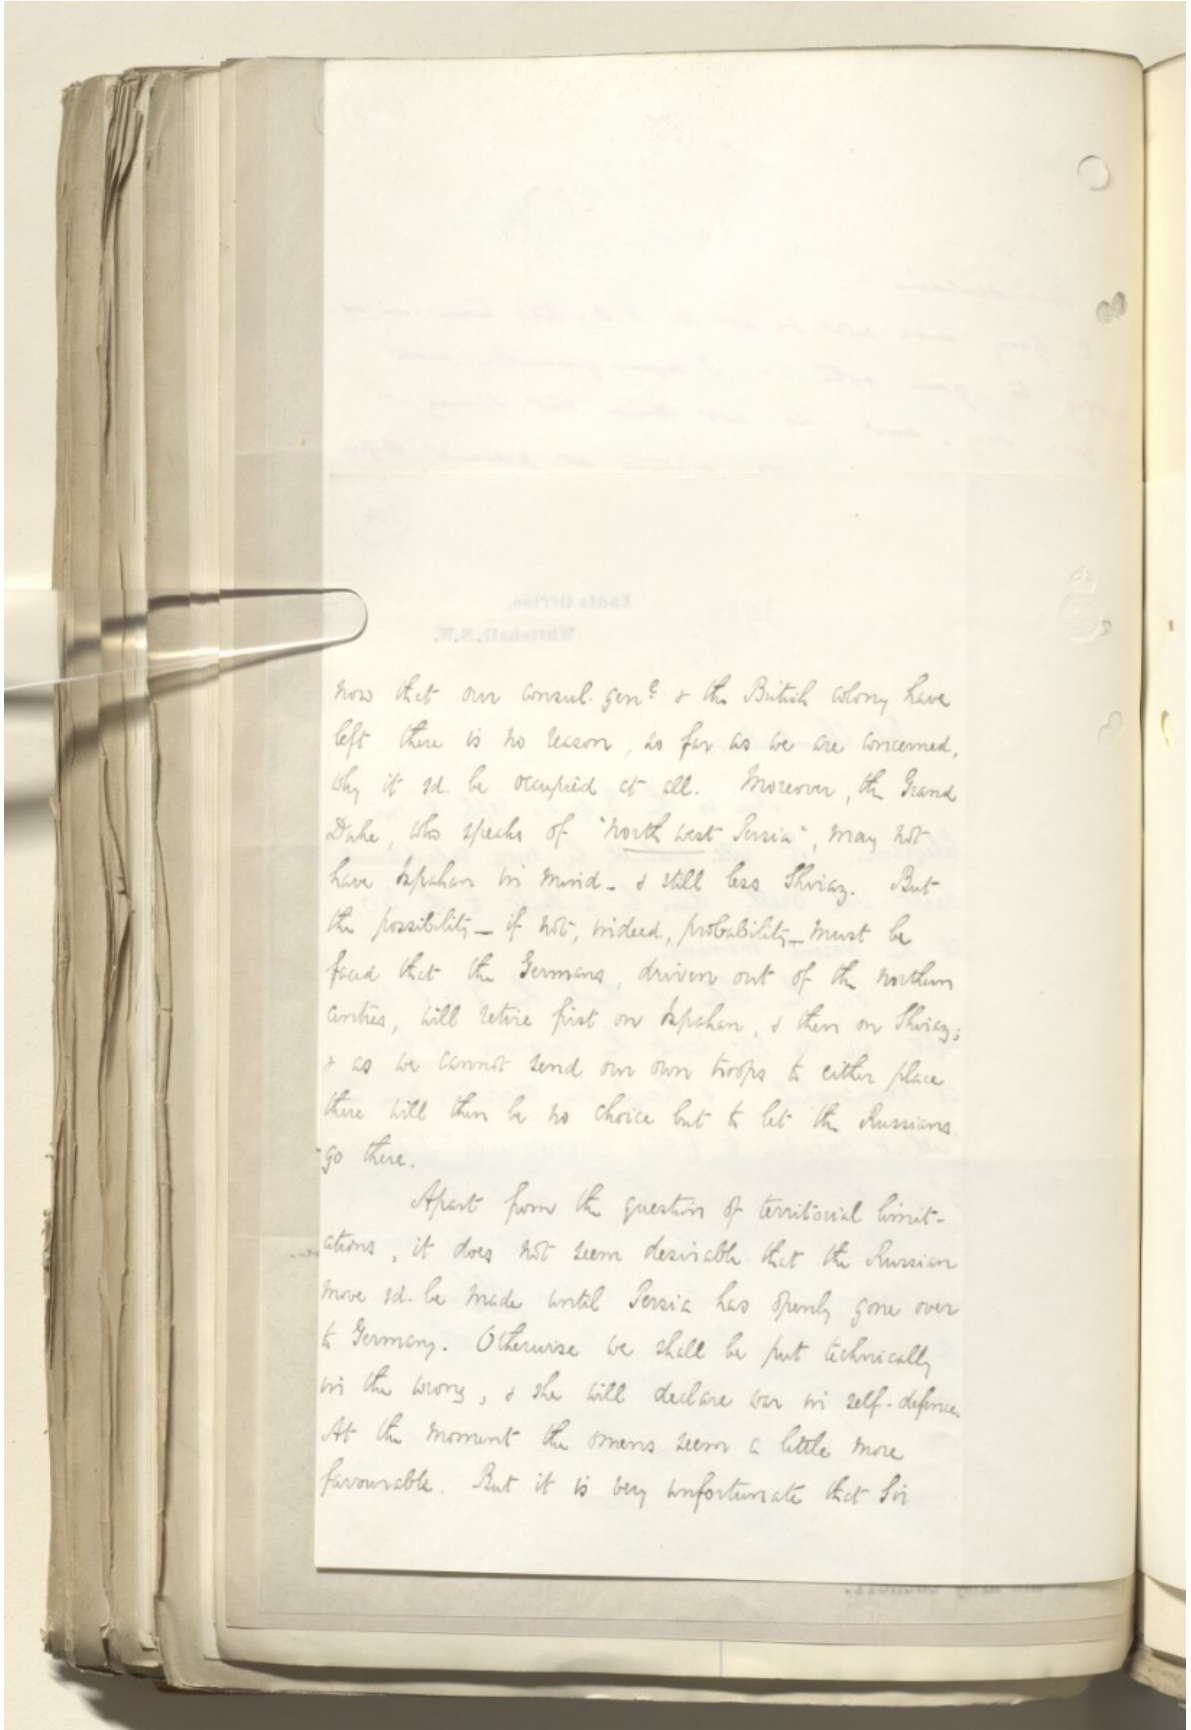 now that our consul. genl. & the British colony have
left there is no reason, so far as we are concerned,
why it sd. be occupied at all. Moreover, the Grand
Duke, who speaks of "north west Persia", may not
have Ispahan in mind - & still less Shiraz. But
the possibility - if not, indeed, probability - must be
faced that the Germans, driven out of the northern
centres, will retire first on Ispahan, & then on Shiraz;
& as we cannot send our own troops to either place
there will then be no choice but to let the Russians
go there.
Apart from the question of territorial limit-
ations, it does not seem desirable that the Russian
move sd. be made until Persia has openly gone over
to Germany. Otherwise we shall be put technically
in the wrong, & she will declare war in self-defence.
At the moment the omens seem a little more
favourable. But it is very unfortunate that Sir
India Office,
Whitehall, S.W.